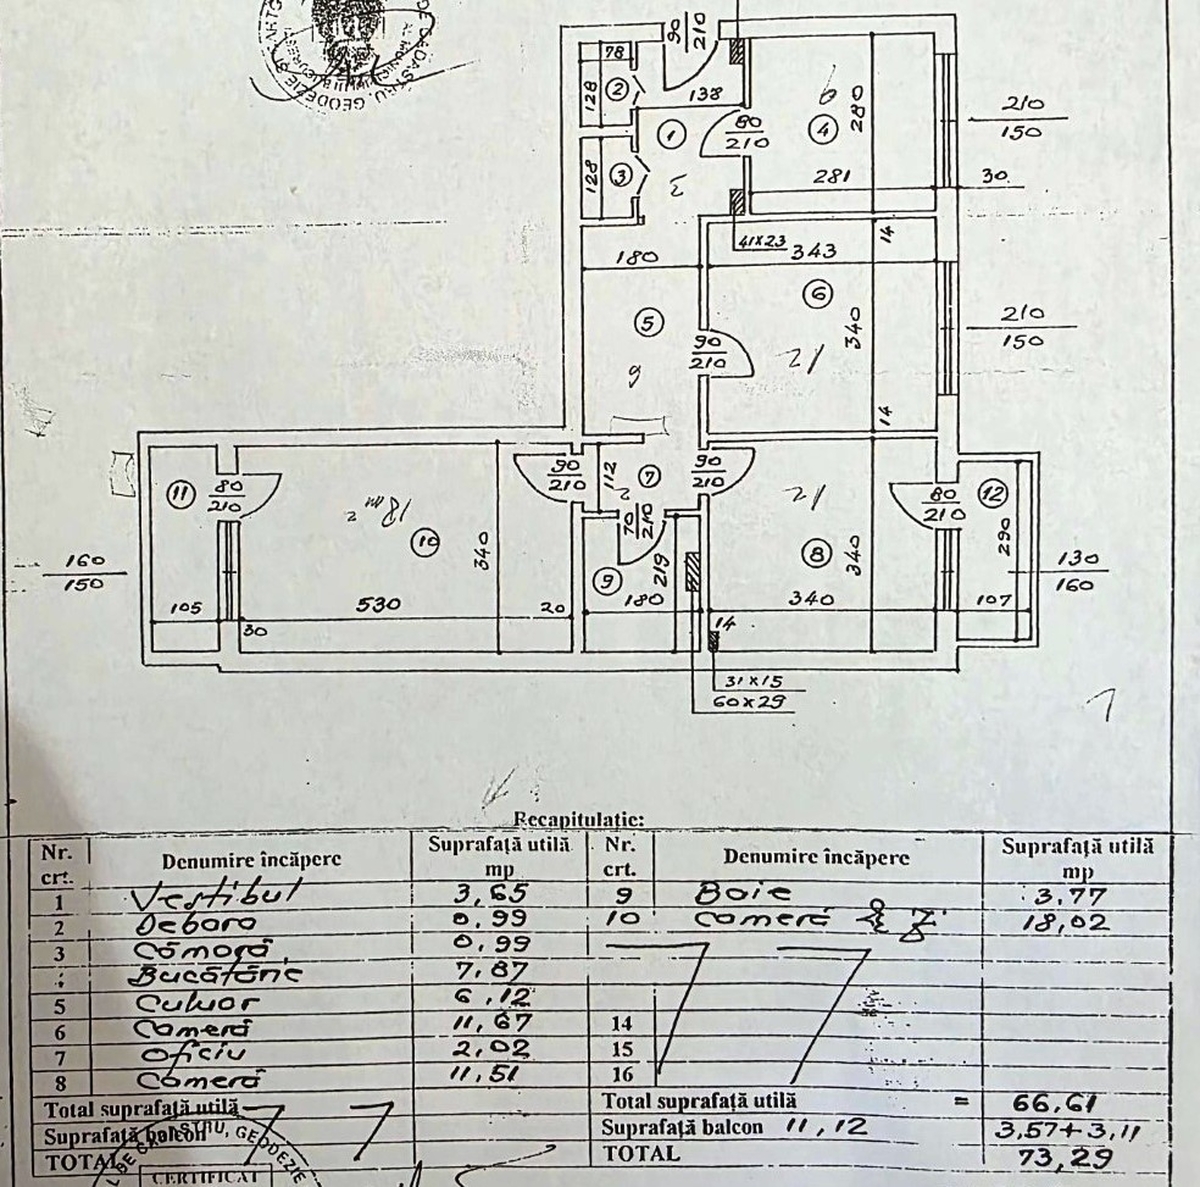 90
210
78
128
2
138
1
80
210
4
280
210
150
128
3
281
30
41x23
14
180
343
5
6
340
210
150
90
210
12
6
14
11
80
210
18 m²
10
340
90
210
112
7
2
90
210
12
80
210
12
290
70
210
8
340
9
219
160
150
130
160
105
530
20
180
340
107
30
14
31x15
60x29
Recapitulație:
Nr. crt. Denumire încăpere Suprafață utilă mp Nr. crt. Denumire încăpere Suprafață utilă mp
1 Vestibul 3,65 9 Baie 3,77
2 Debara 0,99 10 Cameră 18,02
3 Cămară 0,99
Bucătărie 7,87
5 Culuor 6,12
6 Cameră 11,67 14
7 Oficiu 2,02 15
8 Cameră 11,51 16
Total suprafață utilă Total suprafață utilă = 66,61
Suprafață balcon Suprafață balcon 11,12 3,57+3,11
TOTAL TOTAL 73,29
CERTIFICAT